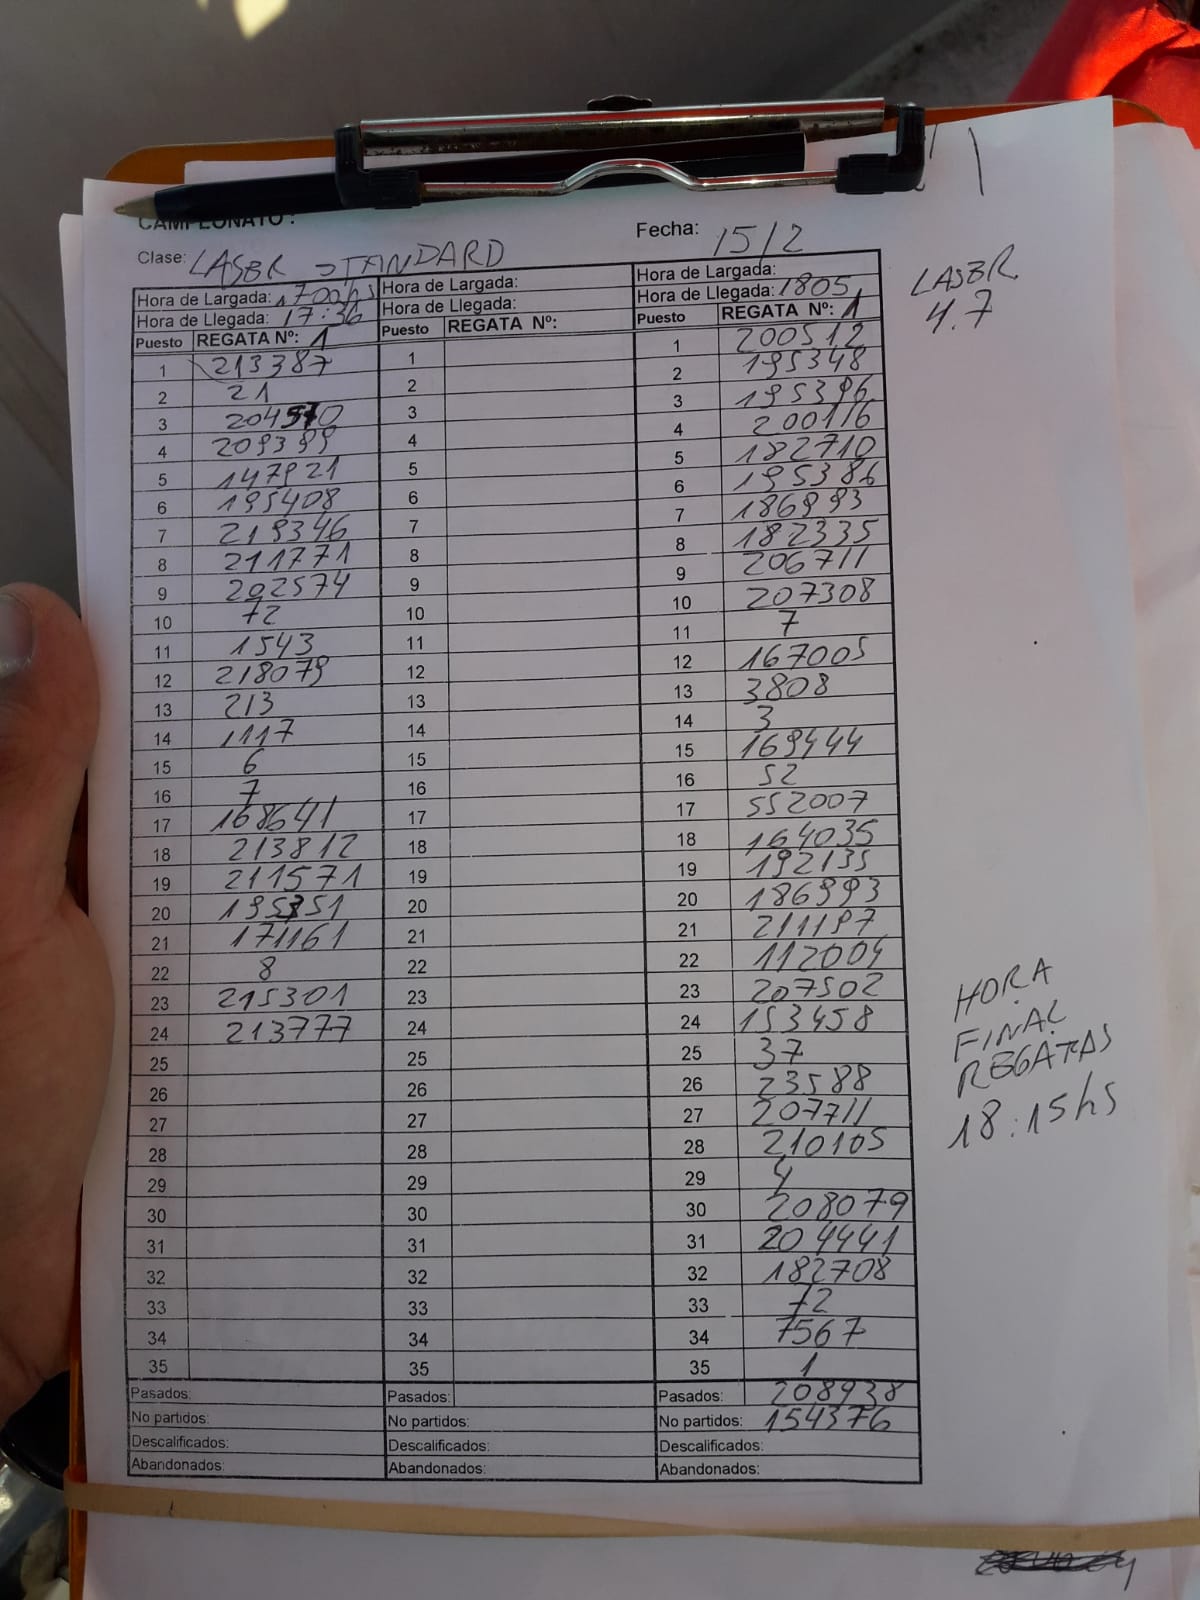 CAMPEONATO :
Clase: LASER STANDARD Fecha: 15/2
LASER
4.7
Hora de Largada: 1700hs Hora de Largada: Hora de Largada:
Hora de Llegada: 17:36 Hora de Llegada: Hora de Llegada: 1805
Puesto REGATA Nº: 1 Puesto REGATA Nº: Puesto REGATA Nº: 1
1 213387 1 1 200512
2 21 2 2 195348
3 204570 3 3 195396
4 209399 4 4 200116
5 147921 5 5 182710
6 195408 6 6 195386
7 219346 7 7 186993
8 211771 8 8 182335
9 202574 9 9 206711
10 72 10 10 207308
11 1543 11 11 7
12 218079 12 12 167005
13 213 13 13 3808
14 1117 14 14 3
15 6 15 15 169444
16 7 16 16 52
17 168641 17 17 552007
18 213812 18 18 164035
19 211571 19 19 192135
20 195351 20 20 186993
21 171161 21 21 211197
22 8 22 22 112004
23 215301 23 23 207502
24 213777 24 24 153458
25 25 25 37
26 26 26 23588
27 27 27 207711
28 28 28 210105
29 29 29 4
30 30 30 208079
31 31 31 204441
32 32 32 182708
33 33 33 72
34 34 34 7567
35 35 35 1
Pasados: Pasados: Pasados: 208938
No partidos: No partidos: No partidos: 154376
Descalificados: Descalificados: Descalificados:
Abandonados: Abandonados: Abandonados:
HORA
FINAL
REGATAS
18:15hs